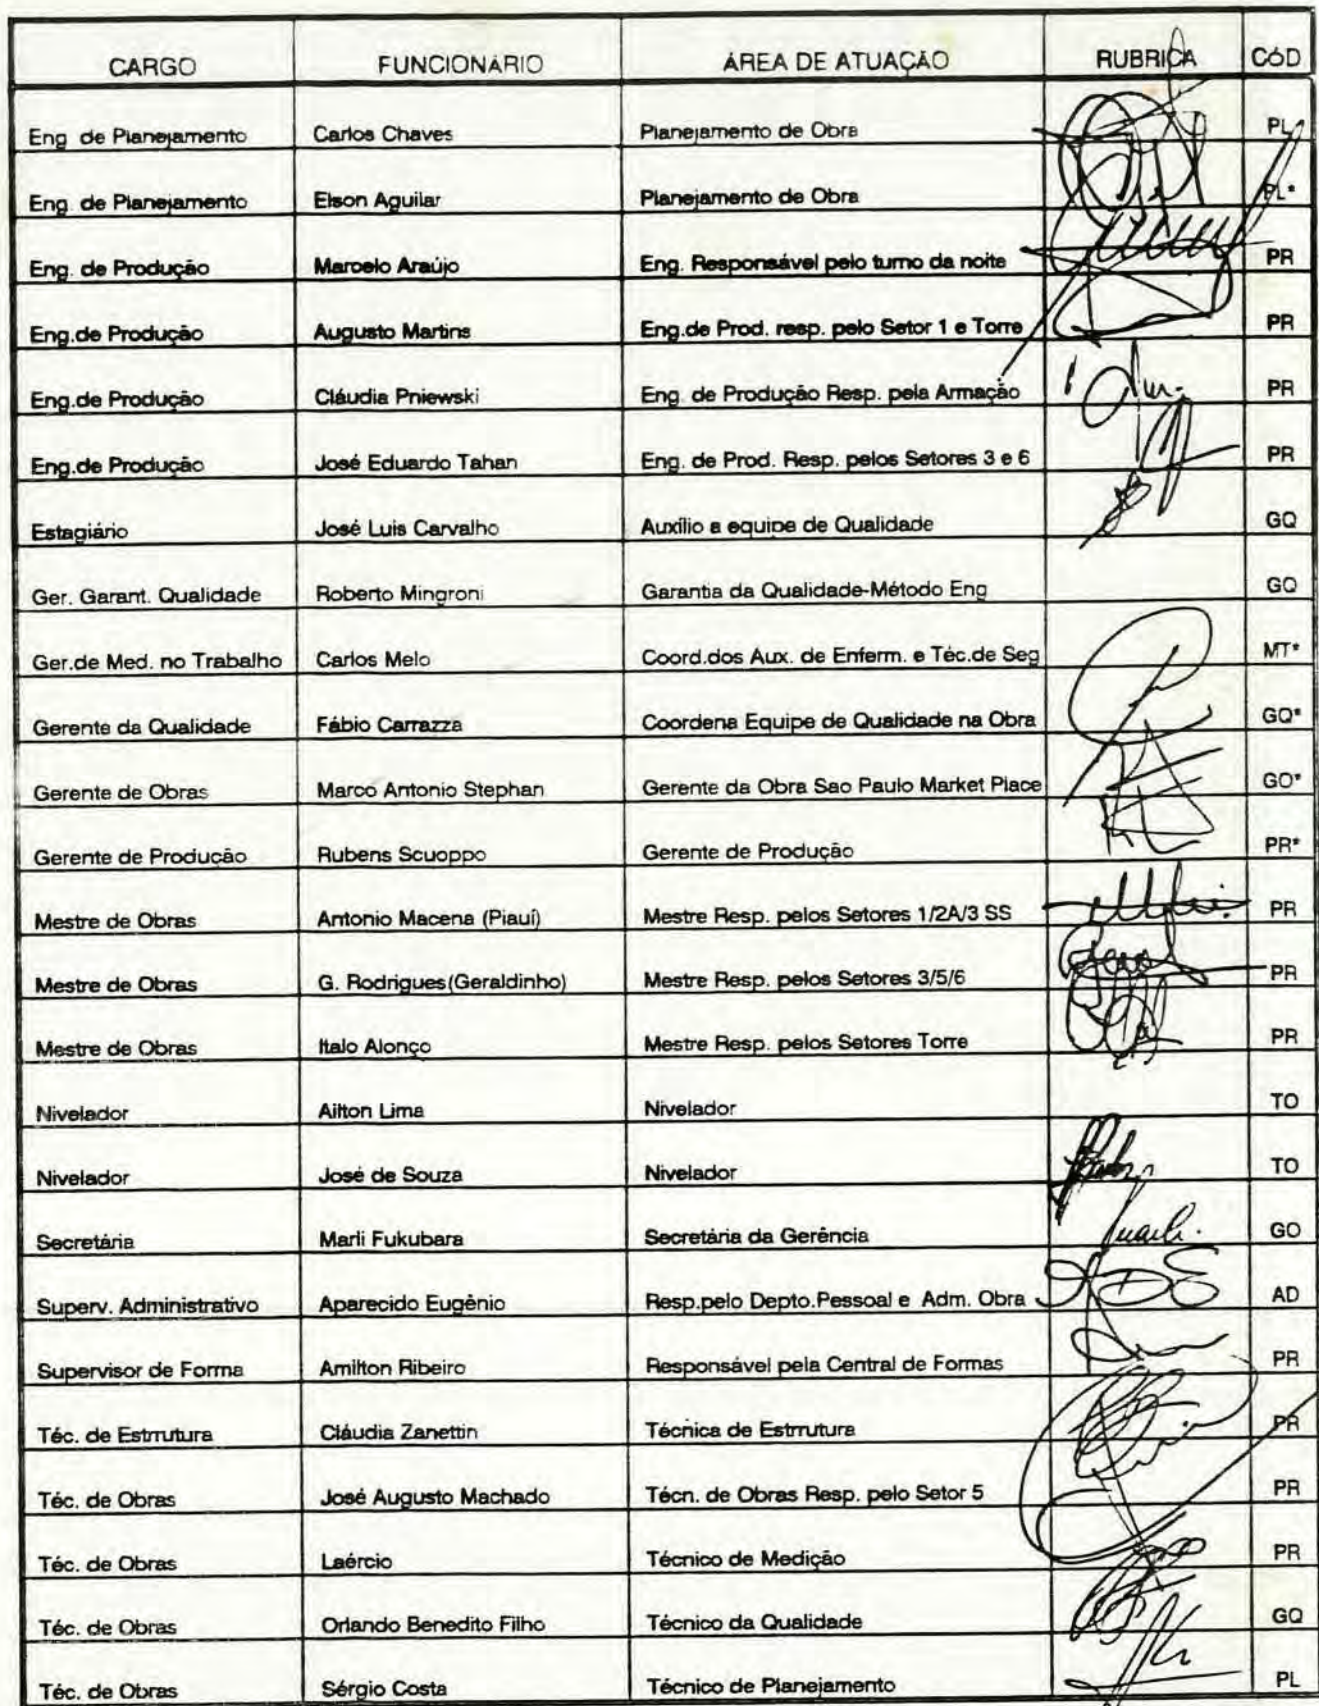 CARGO FUNCIONÁRIO ÁREA DE ATUAÇÃO RUBRICA CÓD
Eng de Planejamento Carlos Chaves Planejamento de Obra PL
Eng. de Planejamento Elson Aguilar Planejamento de Obra PL*
Eng. de Produção Marcelo Araújo Eng. Responsável pelo turno da noite PR
Eng.de Produção Augusto Martins Eng.de Prod. resp. pelo Setor 1 e Torre PR
Eng.de Produção Cláudia Pniewski Eng. de Produção Resp. pela Armação PR
Eng.de Produção José Eduardo Tahan Eng. de Prod. Resp. pelos Setores 3 e 6 PR
Estagiário José Luis Carvalho Auxílio a equipe de Qualidade GQ
Ger. Garant. Qualidade Roberto Mingroni Garantia da Qualidade-Método Eng GQ
Ger.de Med. no Trabalho Carlos Melo Coord.dos Aux. de Enferm. e Téc.de Seg MT*
Gerente da Qualidade Fábio Carrazza Coordena Equipe de Qualidade na Obra GQ*
Gerente de Obras Marco Antonio Stephan Gerente da Obra Sao Paulo Market Place GO*
Gerente de Produção Rubens Scuoppo Gerente de Produção PR*
Mestre de Obras Antonio Macena (Piauí) Mestre Resp. pelos Setores 1/2A/3 SS PR
Mestre de Obras G. Rodrigues(Geraldinho) Mestre Resp. pelos Setores 3/5/6 PR
Mestre de Obras Italo Alonço Mestre Resp. pelos Setores Torre PR
Nivelador Ailton Lima Nivelador TO
Nivelador José de Souza Nivelador TO
Secretária Marli Fukubara Secretária da Gerência Marli. GO
Superv. Administrativo Aparecido Eugênio Resp.pelo Depto.Pessoal e Adm. Obra AD
Supervisor de Forma Amilton Ribeiro Responsável pela Central de Formas PR
Téc. de Estrrutura Cláudia Zanettin Técnica de Estrrutura PR
Téc. de Obras José Augusto Machado Técn. de Obras Resp. pelo Setor 5 PR
Téc. de Obras Laércio Técnico de Medição PR
Téc. de Obras Orlando Benedito Filho Técnico da Qualidade GQ
Téc. de Obras Sérgio Costa Técnico de Planejamento PL